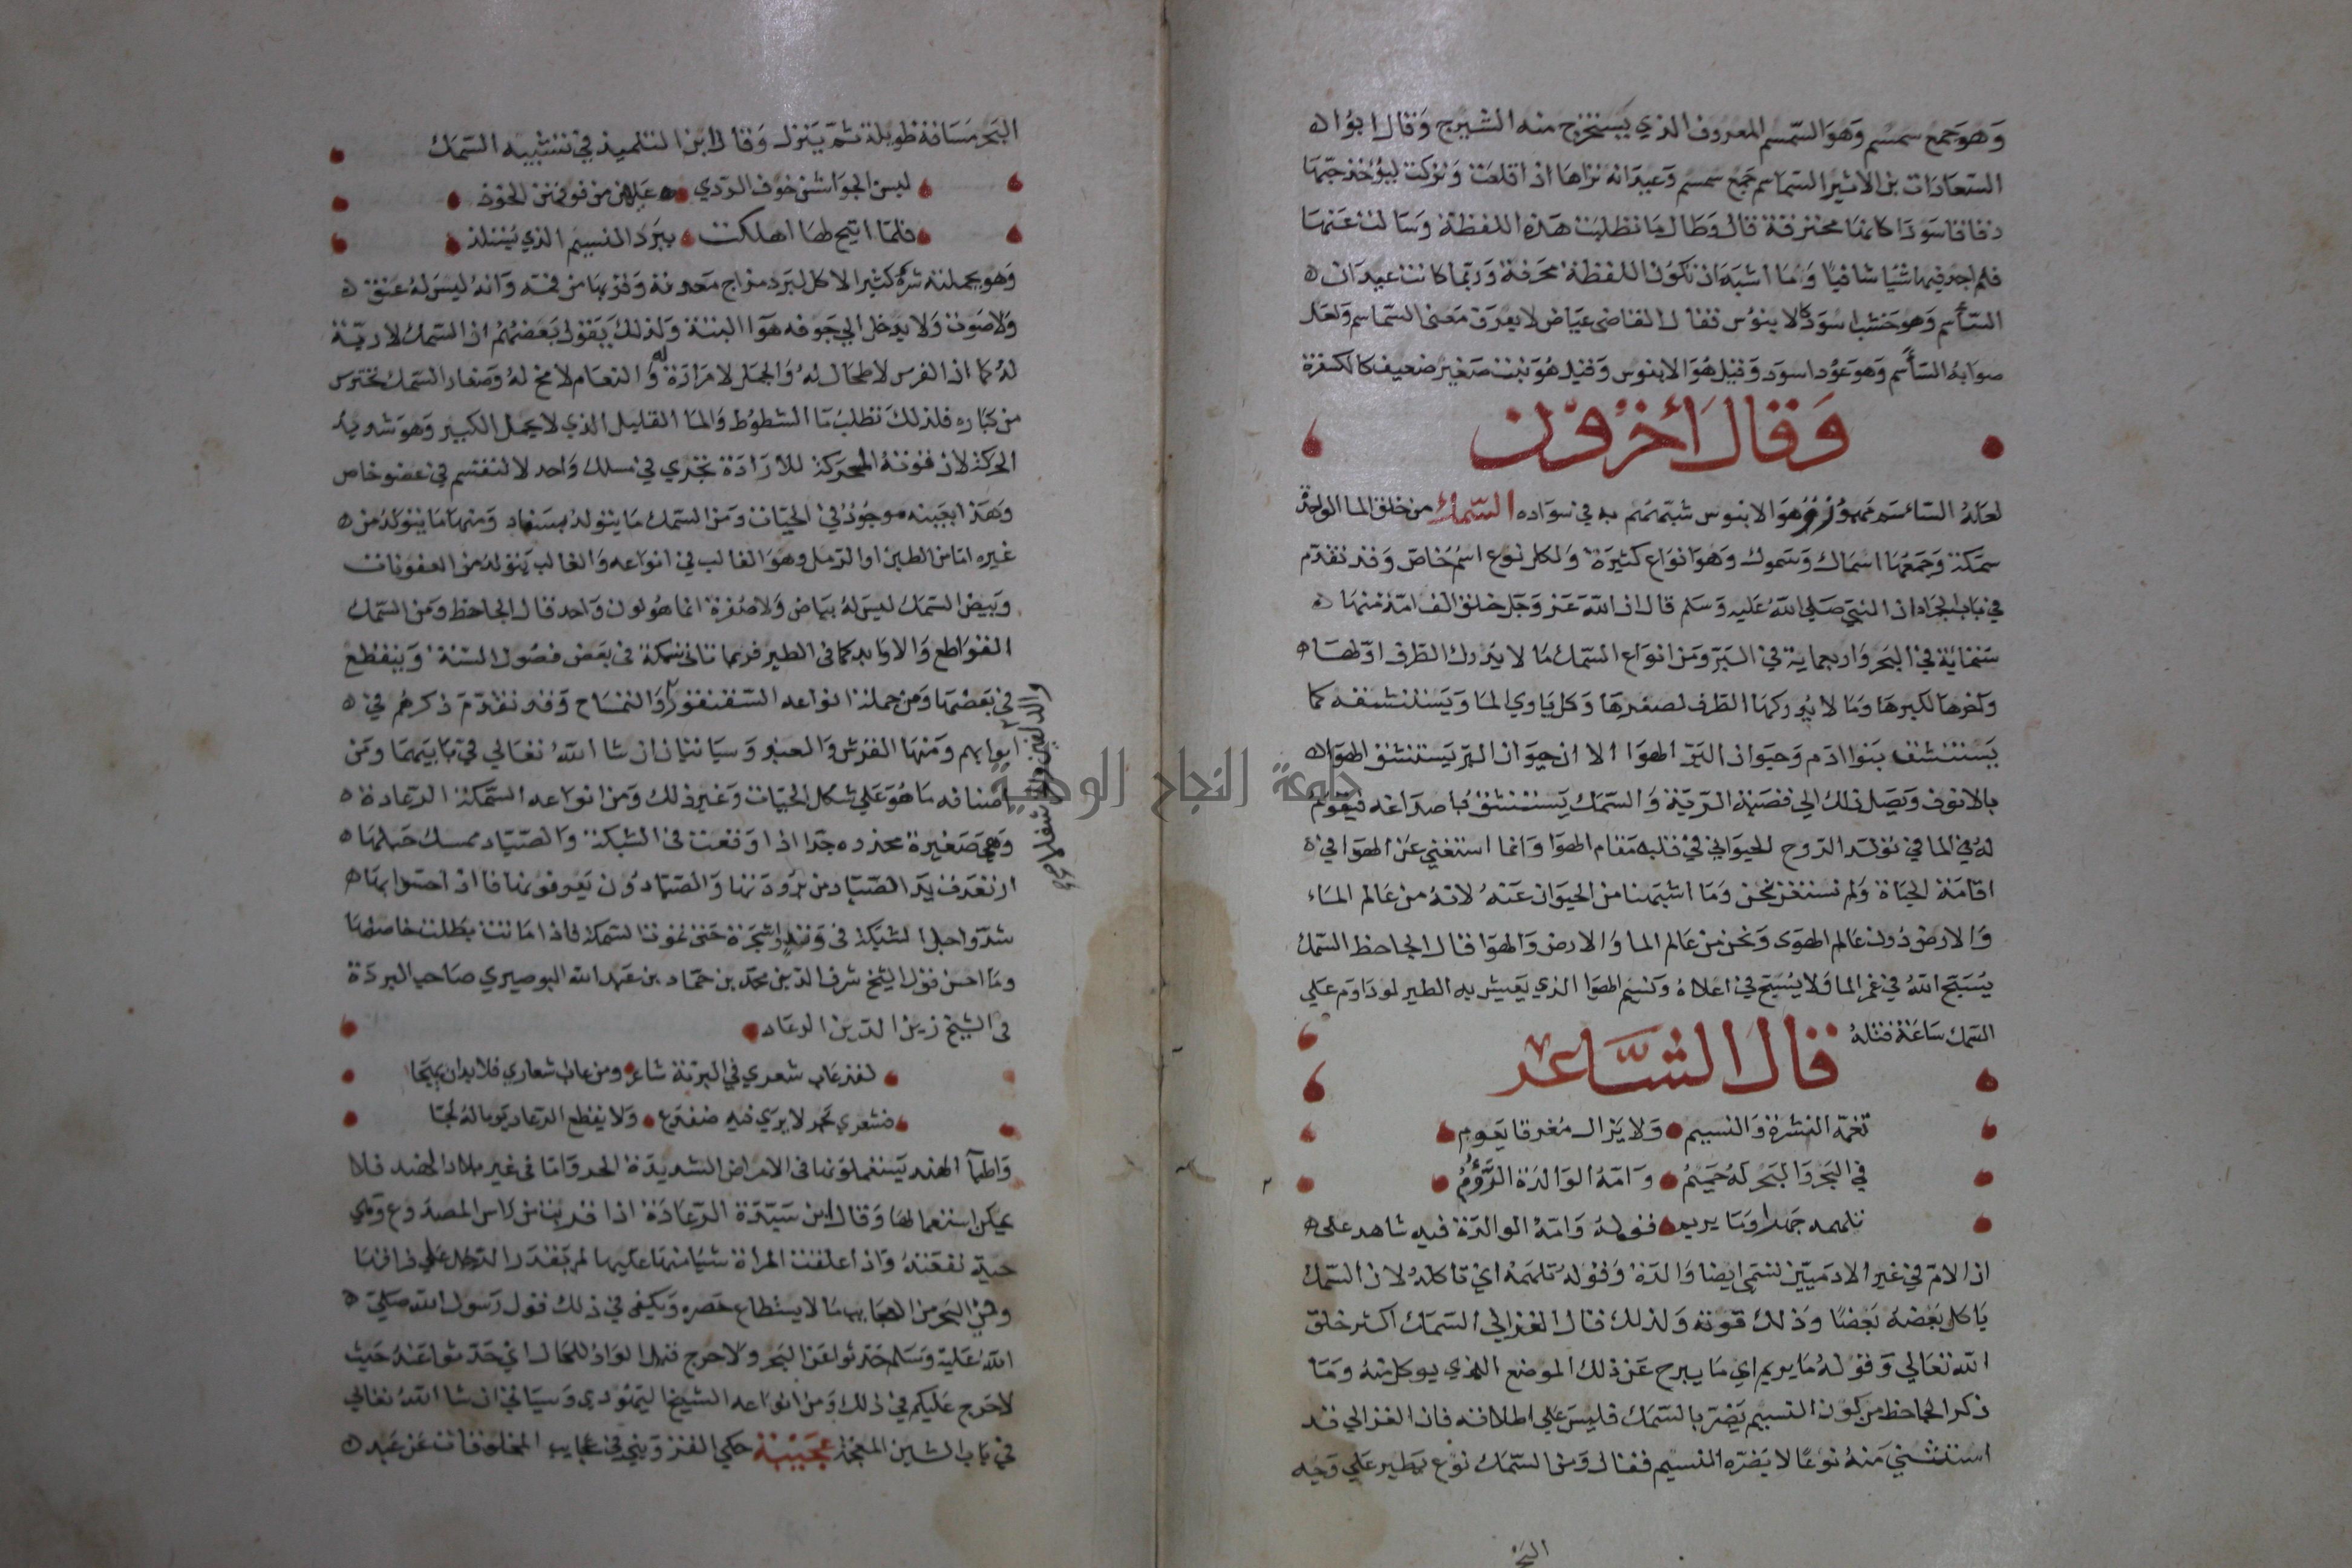 وهو جمع سمسم وهو السمسم المعروف الذي يستخرج منه الشيرج وقال ابوا
السعادات بن الاثير السماسم جمع سمسم وعيدانه تراها اذا قلعت وتركت ليؤخذ حبها
دقاقا سودا كانها محترقة قال وطال ما تطلبت هذه اللفظة وسالت عنها
فلم اجد فيها شيا شافيا وما اشبه ان تكون اللفظة محرفة وربما كانت عيدان
السأسم وهو خشب اسود كالابنوس فقال القاضى عياض لا يعرف معنى السماسم ولعل
صوابه السأسم وهو عود اسود وقيل هو الابنوس وقيل هو نبت صغير ضعيف كالكسفرة
وقال أخرون
لعله الساسم مهموز وهو الابنوس شبههم به في سواده السمك من خلق الما الواحدة
سمكة وجمعها اسماك وسموك وهو انواع كثيرة ولكل نوع اسم خاص وقد تقدم
في باب الجراد ان النبي صلى الله عليه وسلم قال ان الله عز وجل خلق الف امة منها
ستماية في البحر واربعماية في البر ومن انواع السمك ما لا يدرك الطرف اولها
واخرها لكبرها وما لا يدركها الطرف لصغرها وكل ياوي الما ويستنشقه كما
يستنشق بنوا ادم وحيوان البر الهوا الا ان حيوان البر يستنشق الهوا
بالانوف ويصل ذلك الي قصبة الرية والسمك يستنشق باصداغه فيقوم
له في الما في تولد الروح الحيواني في قلبه مقام الهوا وانما استغني عن الهوا في
اقامة الحياة ولم نستغن نحن وما اشبهنا من الحيوان عنه لانه من عالم الماء
والارض دون عالم الهوى ونحن من عالم الما والارض والهوا قال الجاحظ السمك
يسبح الله في غمر الما ولا يسبح في اعلاه ونسيم الهوا الذي يعيش به الطير لو داوم علي
السمك ساعة قتله
قال الشاعر
تغمه النشرة والنسيم ولا يزال مغرقا يعوم
في البحر والبحر له حميم وامه الوالدة الرؤم
تلهمه جهدا وما يريم فقوله وامه الوالدة فيه شاهد على
ان الام في غير الادميين تسمى ايضا والدة وقوله تلهمه اي تاكله لان السمك
ياكل بعضه بعضا وذلك قوته ولذلك قال الغزالي السمك اكثر خلق
الله تعالي وقوله ما يريم اي ما يبرح عن ذلك الموضع الذي يوكل منه وما
ذكر الجاحظ من كون النسيم يضر بالسمك فليس علي اطلاقه فان الغزالي قد
استثني منه نوعا لا يضره النسيم فقال ومن السمك نوع يطير علي وجه
البحر
البحر مسافة طويلة ثم ينزل وقال ابن التلميذ في تشبيه السمك
لبسن الجواشن خوف الردي عليهن من فوقهن الخوذ
فلما اتيح لها اهلكت ببرد النسيم الذي يستلذ
وهو بجملته شره كثير الاكل لبرد مزاج معدته وقربها من فمه وانه ليس له عنق
ولا صوت ولا يدخل الي جوفه هوا البتة ولذلك يقول بعضهم ان السمك لا رية
له كما ان الفرس لا طحال له والجمل لا مرارة له والنعام لا مخ له وصغار السمك تحترس
من كباره فلذلك تطلب ما الشطوط والما القليل الذي لا يحمل الكبير وهو شديد
الحركة لان قوته المحركة للارادة تجري في مسلك واحد لا تنقسم في عضو خاص
وهذا بعينه موجود في الحيات ومن السمك ما يتولد بسفاد ومنها ما يتولد من
غيره اما من الطين او الرمل وهو الغالب في انواعه والغالب يتولد من العفونات
وبيض السمك ليس له بياض ولا صفرة انما هو لون واحد قال الجاحظ ومن السمك
القواطع والاوابد كما في الطير فربما تاتى سمكة فى بعض فصول السنة وينقطع
فى بعضها ومن جملة انواعه السقنقور والتمساح وقد تقدم ذكرهم في
والدلفين
ابوابهم ومنها القرش والعنبر وسياتيان ان شا الله تعالي في بابيهما ومن
اصنافه ما هو علي شكل الحيات وغير ذلك ومن انواعه السمكة الرعادة
وهي صغيرة مخدره جدا اذا وقعت فى الشبكة والصياد ممسك حبلها
ارتعدت يد الصياد من برودتها والصيادون يعرفونها فاذا احسوا بها
شدوا حبل الشبكة فى وتد او شجرة حتى تموت السمكة فاذا ماتت بطلت خاصتها
وما احسن قول الشيخ شرف الدين محمد بن حماد بن عبد الله البوصيري صاحب البردة
فى الشيخ زين الدين الرعاد
لقد عاب شعري في البرية شاعر ومن عاب شعاري فلا بد ان يهجا
فشعري بحر لا يري فيه ضفدع ولا يقطع الرعاد يوما له لجا
واطبآ الهند يستعملونها فى الامراض الشديدة الحر واما فى غير بلاد الهند فلا
يمكن استعمالها وقال ابن سيدة الرعادة اذا قربت من راس المصدوع وهي
حية نفعته واذا علقت المراة شيا منها عليها لم يقدر الرجل علي فراقها
وفي البحر من العجايب ما لا يستطاع حصره ويكفي في ذلك قول رسول الله صلي
الله عليه وسلم حدثوا عن البحر ولا حرج فهذا الواو للحال اي حدثوا عنه حيث
لا حرج عليكم في ذلك ومن انواعه الشيخ اليهودي وسياتي ان شا الله تعالي
في باب الشين المعجمة عجيبة حكي القزويني في عجايب المخلوقات عن عبد
جامعة النجاح الوطنية